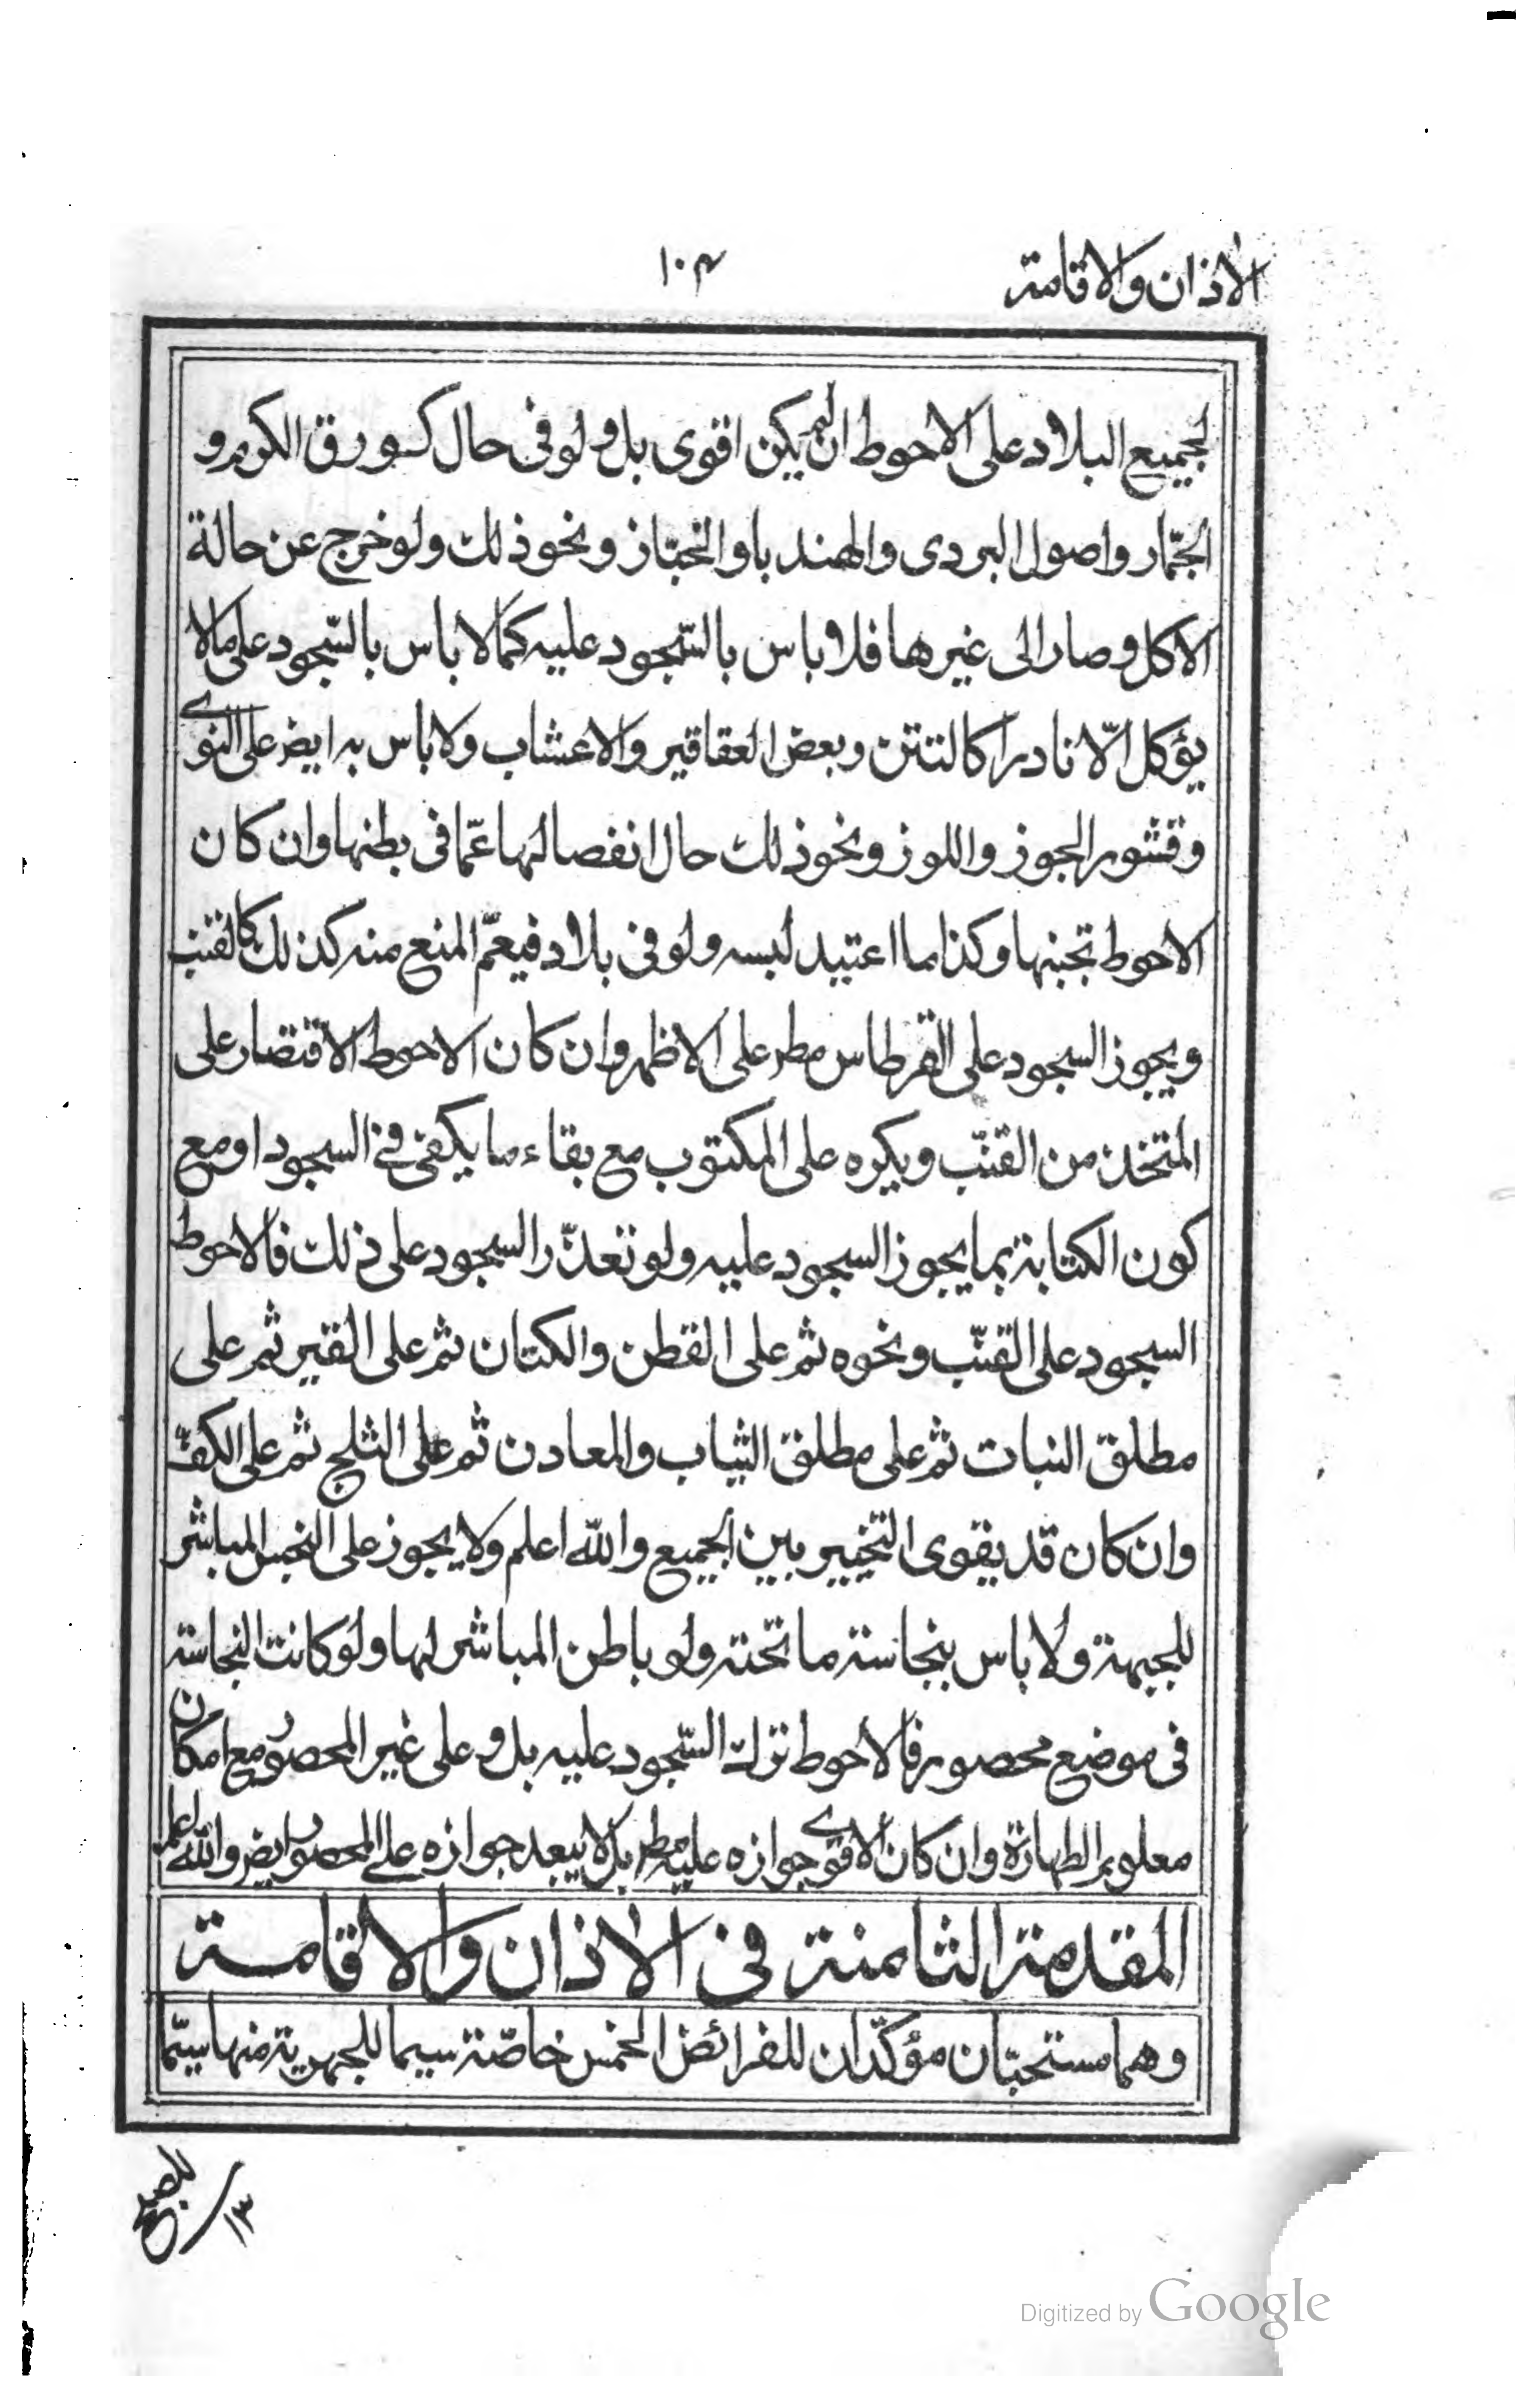 الاذان والاقامة
١٠٤
لجميع البلاد على الاحوط ان لم يكن اقوى بل ولو فى حال كــورق الكرم و
الجمّار واصول البردى والهندبا والخبّاز ونحو ذلك ولو خرج عن حالة
الاكل وصار الى غيرها فلا باس بالسّجود عليه كما لا باس بالسّجود على ما لا
يؤكل الّا نادرا كالتتن وبعض العقاقير والاعشاب ولا باس به ايض على النوى
وقشور الجوز واللوز ونحو ذلك حال انفصالها عمّا فى بطنها وان كان
الاحوط تجنبها وكذا ما اعتيد لبسه ولو فى بلاد فيعمّ المنع منه كذلك كالقنب
ويجوز السجود على القرطاس مطر على الاظهر وان كان الاحوط الاقتصار على
المتخذ من القنّب ويكره على المكتوب مع بقاء ما يكفى فى السجود او مع
كون الكتابة بما يجوز السجود عليه ولو تعذّر السجود على ذلك فالاحوط
السجود على القنّب ونحوه ثم على القطن والكتان ثم على القير ثم على
مطلق النبات ثم على مطلق الثياب والمعادن ثم على الثلج ثم على الكفّ
وان كان قد يقوى التخيير بين الجميع والله اعلم ولا يجوز على النجس المباشر
للجبهة ولا باس بنجاسة ما تحته ولو باطن المباشر لها ولو كانت النجاسة
فى موضع محصور فالاحوط ترك السّجود عليه بل وعلى غير المحصور مع امكان
معلوم الطهارة وان كان الاقوى جوازه عليه مطر بل لا يبعد جوازه على المحصور ايض والله اعلم
المقدمة الثامنة فى الاذان والاقامــة
وهما مستحبّان مؤكّدان للفرائض الخمس خاصّة سيما للجهرية منها سيّما
للصبح
١٣
Digitized by Google